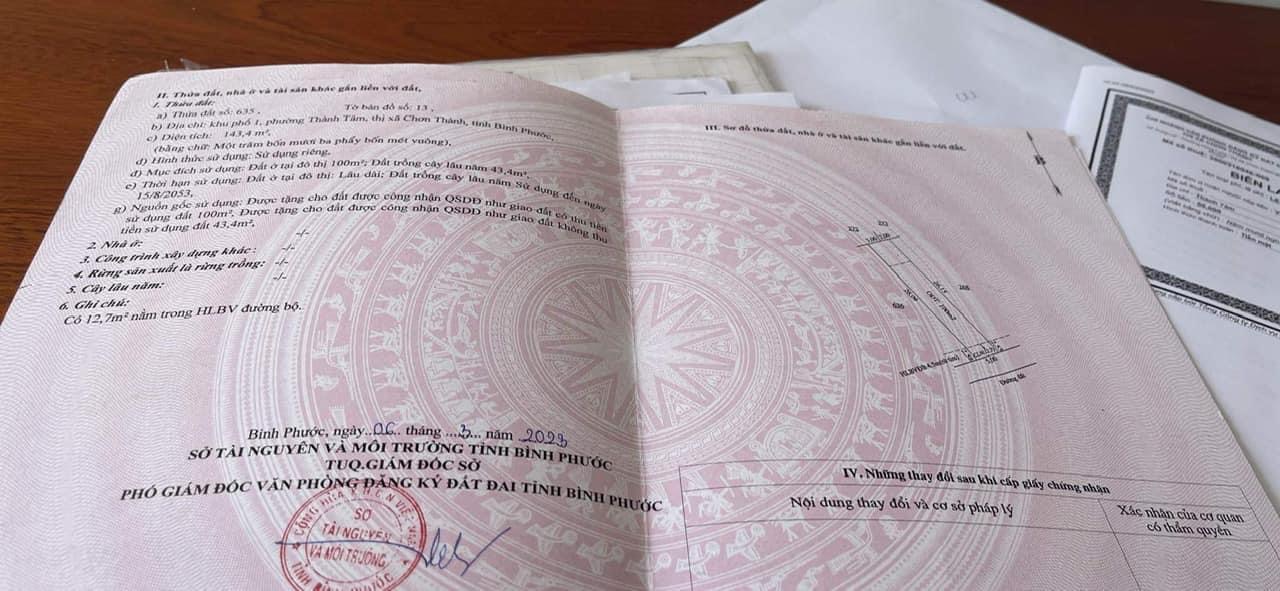 II. Thửa đất, nhà ở và tài sản khác gắn liền với đất,
1. Thửa đất:
a) Thửa đất số: 635, Tờ bản đồ số: 13,
b) Địa chỉ: khu phố 1, phường Thành Tâm, thị xã Chơn Thành, tỉnh Bình Phước,
c) Diện tích: 143,4 m²,
(bằng chữ: Một trăm bốn mươi ba phẩy bốn mét vuông),
d) Hình thức sử dụng: Sử dụng riêng,
đ) Mục đích sử dụng: Đất ở tại đô thị 100m²; Đất trồng cây lâu năm 43,4m²,
e) Thời hạn sử dụng: Đất ở tại đô thị: Lâu dài; Đất trồng cây lâu năm Sử dụng đến ngày
15/8/2053,
g) Nguồn gốc sử dụng: Được tặng cho đất được công nhận QSDĐ như giao đất có thu tiền
sử dụng đất 100m², Được tặng cho đất được công nhận QSDĐ như giao đất không thu
tiền sử dụng đất 43,4m²,
2. Nhà ở: -/-
3. Công trình xây dựng khác: -/-
4. Rừng sản xuất là rừng trồng: -/-
5. Cây lâu năm: -/-
6. Ghi chú:
Có 12,7m² nằm trong HLBV đường bộ.
Bình Phước, ngày 06 tháng 3 năm 2023
SỞ TÀI NGUYÊN VÀ MÔI TRƯỜNG TỈNH BÌNH PHƯỚC
TUQ.GIÁM ĐỐC SỞ
PHÓ GIÁM ĐỐC VĂN PHÒNG ĐĂNG KÝ ĐẤT ĐAI TỈNH BÌNH PHƯỚC
SỞ
TÀI NGUYÊN
VÀ MÔI TRƯỜNG
III. Sơ đồ thửa đất, nhà ở và tài sản khác gắn liền với đất.
B
636
5.00
Đường đất
IV. Những thay đổi sau khi cấp giấy chứng nhận
Nội dung thay đổi và cơ sở pháp lý
Xác nhận của cơ quan
có thẩm quyền
BIÊN LA